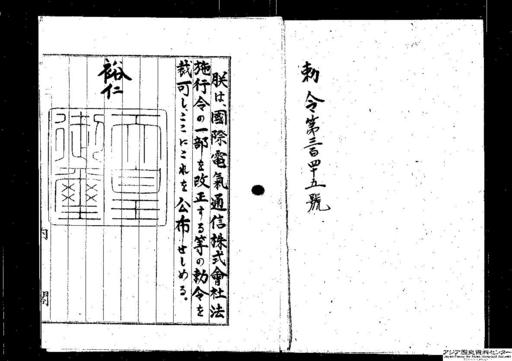 勅令第三百四十五號
朕は、國際電氣通信株式會社法
施行令の一部を改正する等の勅令を
裁可し、ここにこれを公布せしめる。
裕仁
天皇
御璽
内閣
アジア歴史資料センター